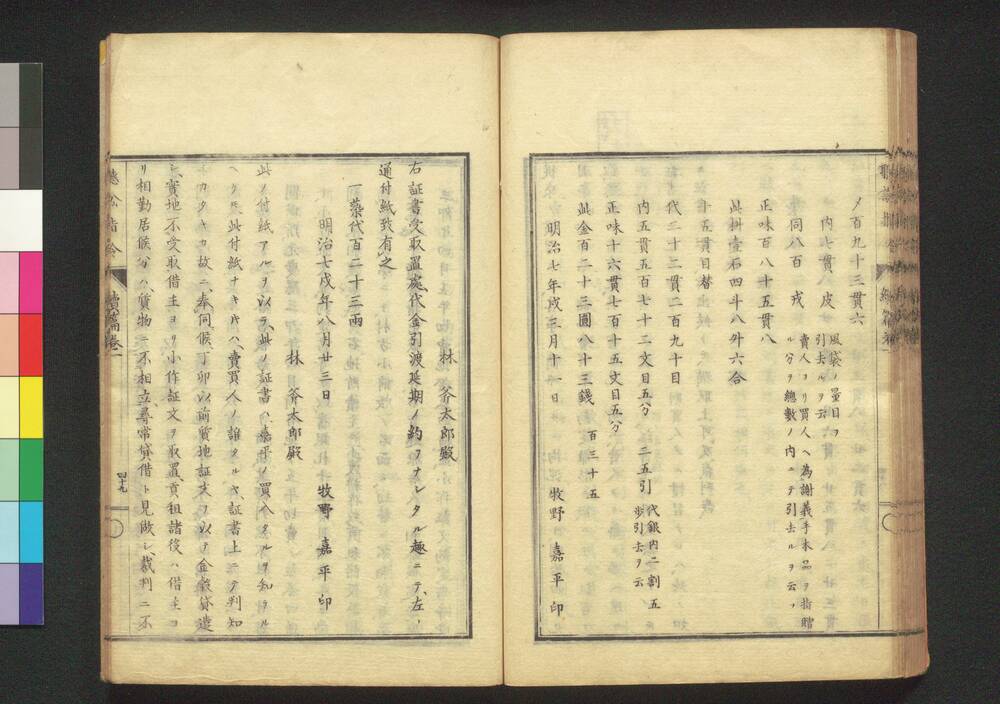 〆百九十三貫六
内七貫八 皮 風袋ノ量目ヲ引去ルヲ云
同八百 戎 賣人ヨリ買人ヘ為謝義手本品ヲ指贈ル分ヲ總數ノ内ニテ引去ルヲ云フ
正味百八十五貫八
此斛壹石四斗八外六合
十五貫目替
代二十二貫二百九十目
内五貫五百七十二文目五分 二五引 代銀内二割五歩引去ヲ云
正味十六貫七百十五文目五分
此金百二十三圓八十三錢 百三十五
明治七年戌三月十一日 牧野 嘉平 印
林 斧太郎殿
右証書受取置処代金引渡延期ノ約ヲナシタル趣ニテ、左ノ
通付紙致有之
一藥代百二十三両
明治七戌年八月廿三日 牧野 嘉平 印
林 斧太郎殿
此ノ付紙アルヲ以テ、此ノ証書ハ、嘉平ノ買人タルヲ知ラル
ヘクモ、此付紙ナキ片ハ、賣買人ノ誰タルヤ、証書上ニテ判知
シカタキカ故ニ、奉伺候丁卯以前質地証文ヲ以テ金穀貸遣
シ、實地ハ不受取借主ヨリ小作証文ヲ取置、貢租諸役ハ借主ヨ
リ相勤居候分ハ、質物ニ不相立、尋常貸借ト見做シ、裁判ニ不
聴訟指令 續編巻一
四十九